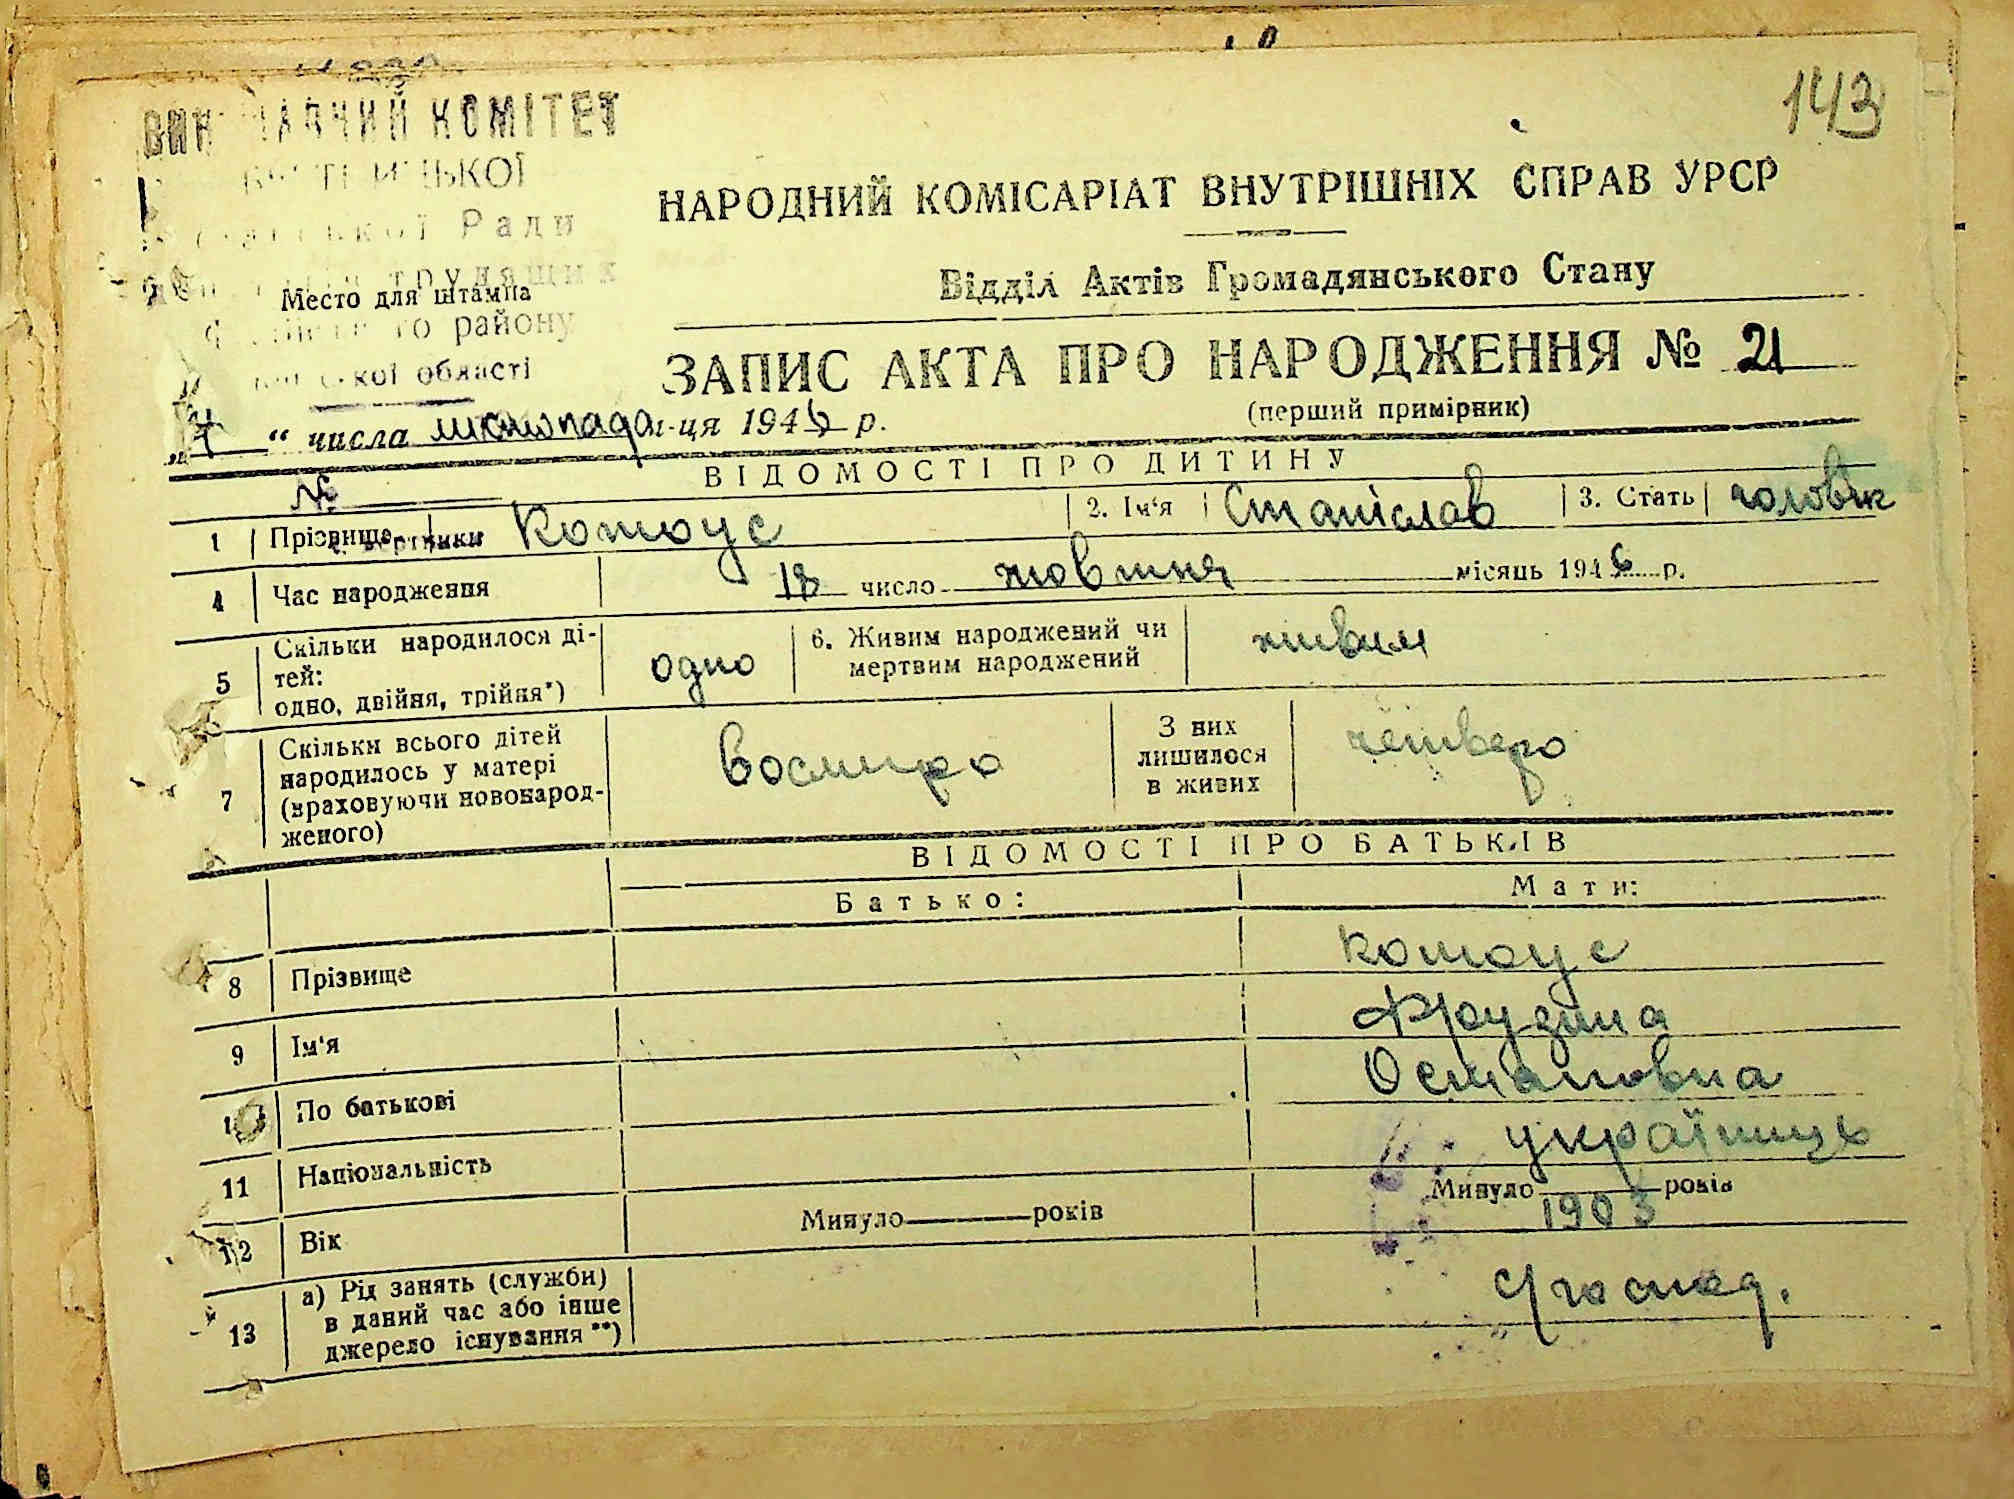 143
КОМІТЕТ
Ради
трудящих
Место для штампа
району
області
НАРОДНИЙ КОМІСАРІАТ ВНУТРІШНІХ СПРАВ УРСР
Відділ Актів Громадянського Стану
ЗАПИС АКТА ПРО НАРОДЖЕННЯ № 21
(перший примірник)
„ 4 “ числа листопада м-ця 1946 р.
ВІДОМОСТІ ПРО ДИТИНУ
1 Прізвище Котоус 2. Ім‘я Станіслав 3. Стать чоловік
4 Час народження 18 число жовтня місяць 1946 р.
5 Скільки народилося ді-
тей:
одно, двійня, трійня*) одно
6. Живим народжений чи
мертвим народжений живим
7 Скільки всього дітей
народилось у матері
(враховуючи новонарод-
женого) восмиро
З них
лишилося
в живих четверо
ВІДОМОСТІ ПРО БАТЬКІВ
Батько: Мати:
8 Прізвище Котоус
9 Ім‘я Фрузина
По батькові Остаповна
11 Національність українць
12 Вік Минуло років Минуло 1903 років
13 а) Рід занять (служби)
в даний час або інше
джерело існування **)